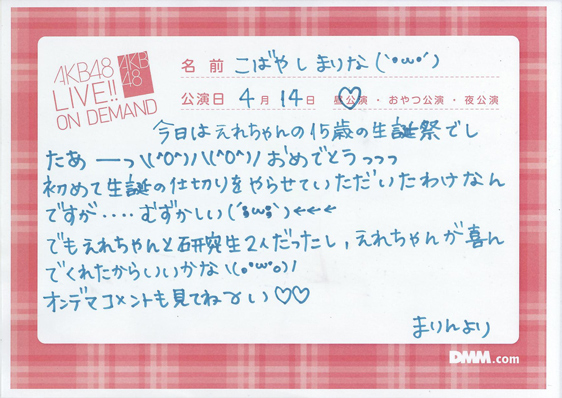 AKB48
LIVE!!
ON DEMAND
AKB
48
名前 こばやしまりな(`•ω•´)
公演日 4月14日 ♡昼公演・おやつ公演・夜公演
今日はえれちゃんの15歳の生誕祭でし
たあーーっ\(^O^)/\(^O^)/おめでとうっっっ
初めて生誕の仕切りをやらせていただいたわけなん
ですが‥‥むずかしい(´;ω;`)←←←
でもえれちゃんと研究生2人だったし、えれちゃんが喜ん
でくれたからいいかな\(。•ω•。)/
オンデマコメントも見てねんい♡♡
まりんより
DMM.com